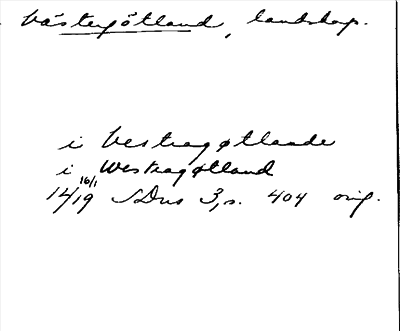 Västergötland, landskap.
i Vestragøtlande
i Westragøtland
14 16/1 19 SDns 3, s. 404 orig.